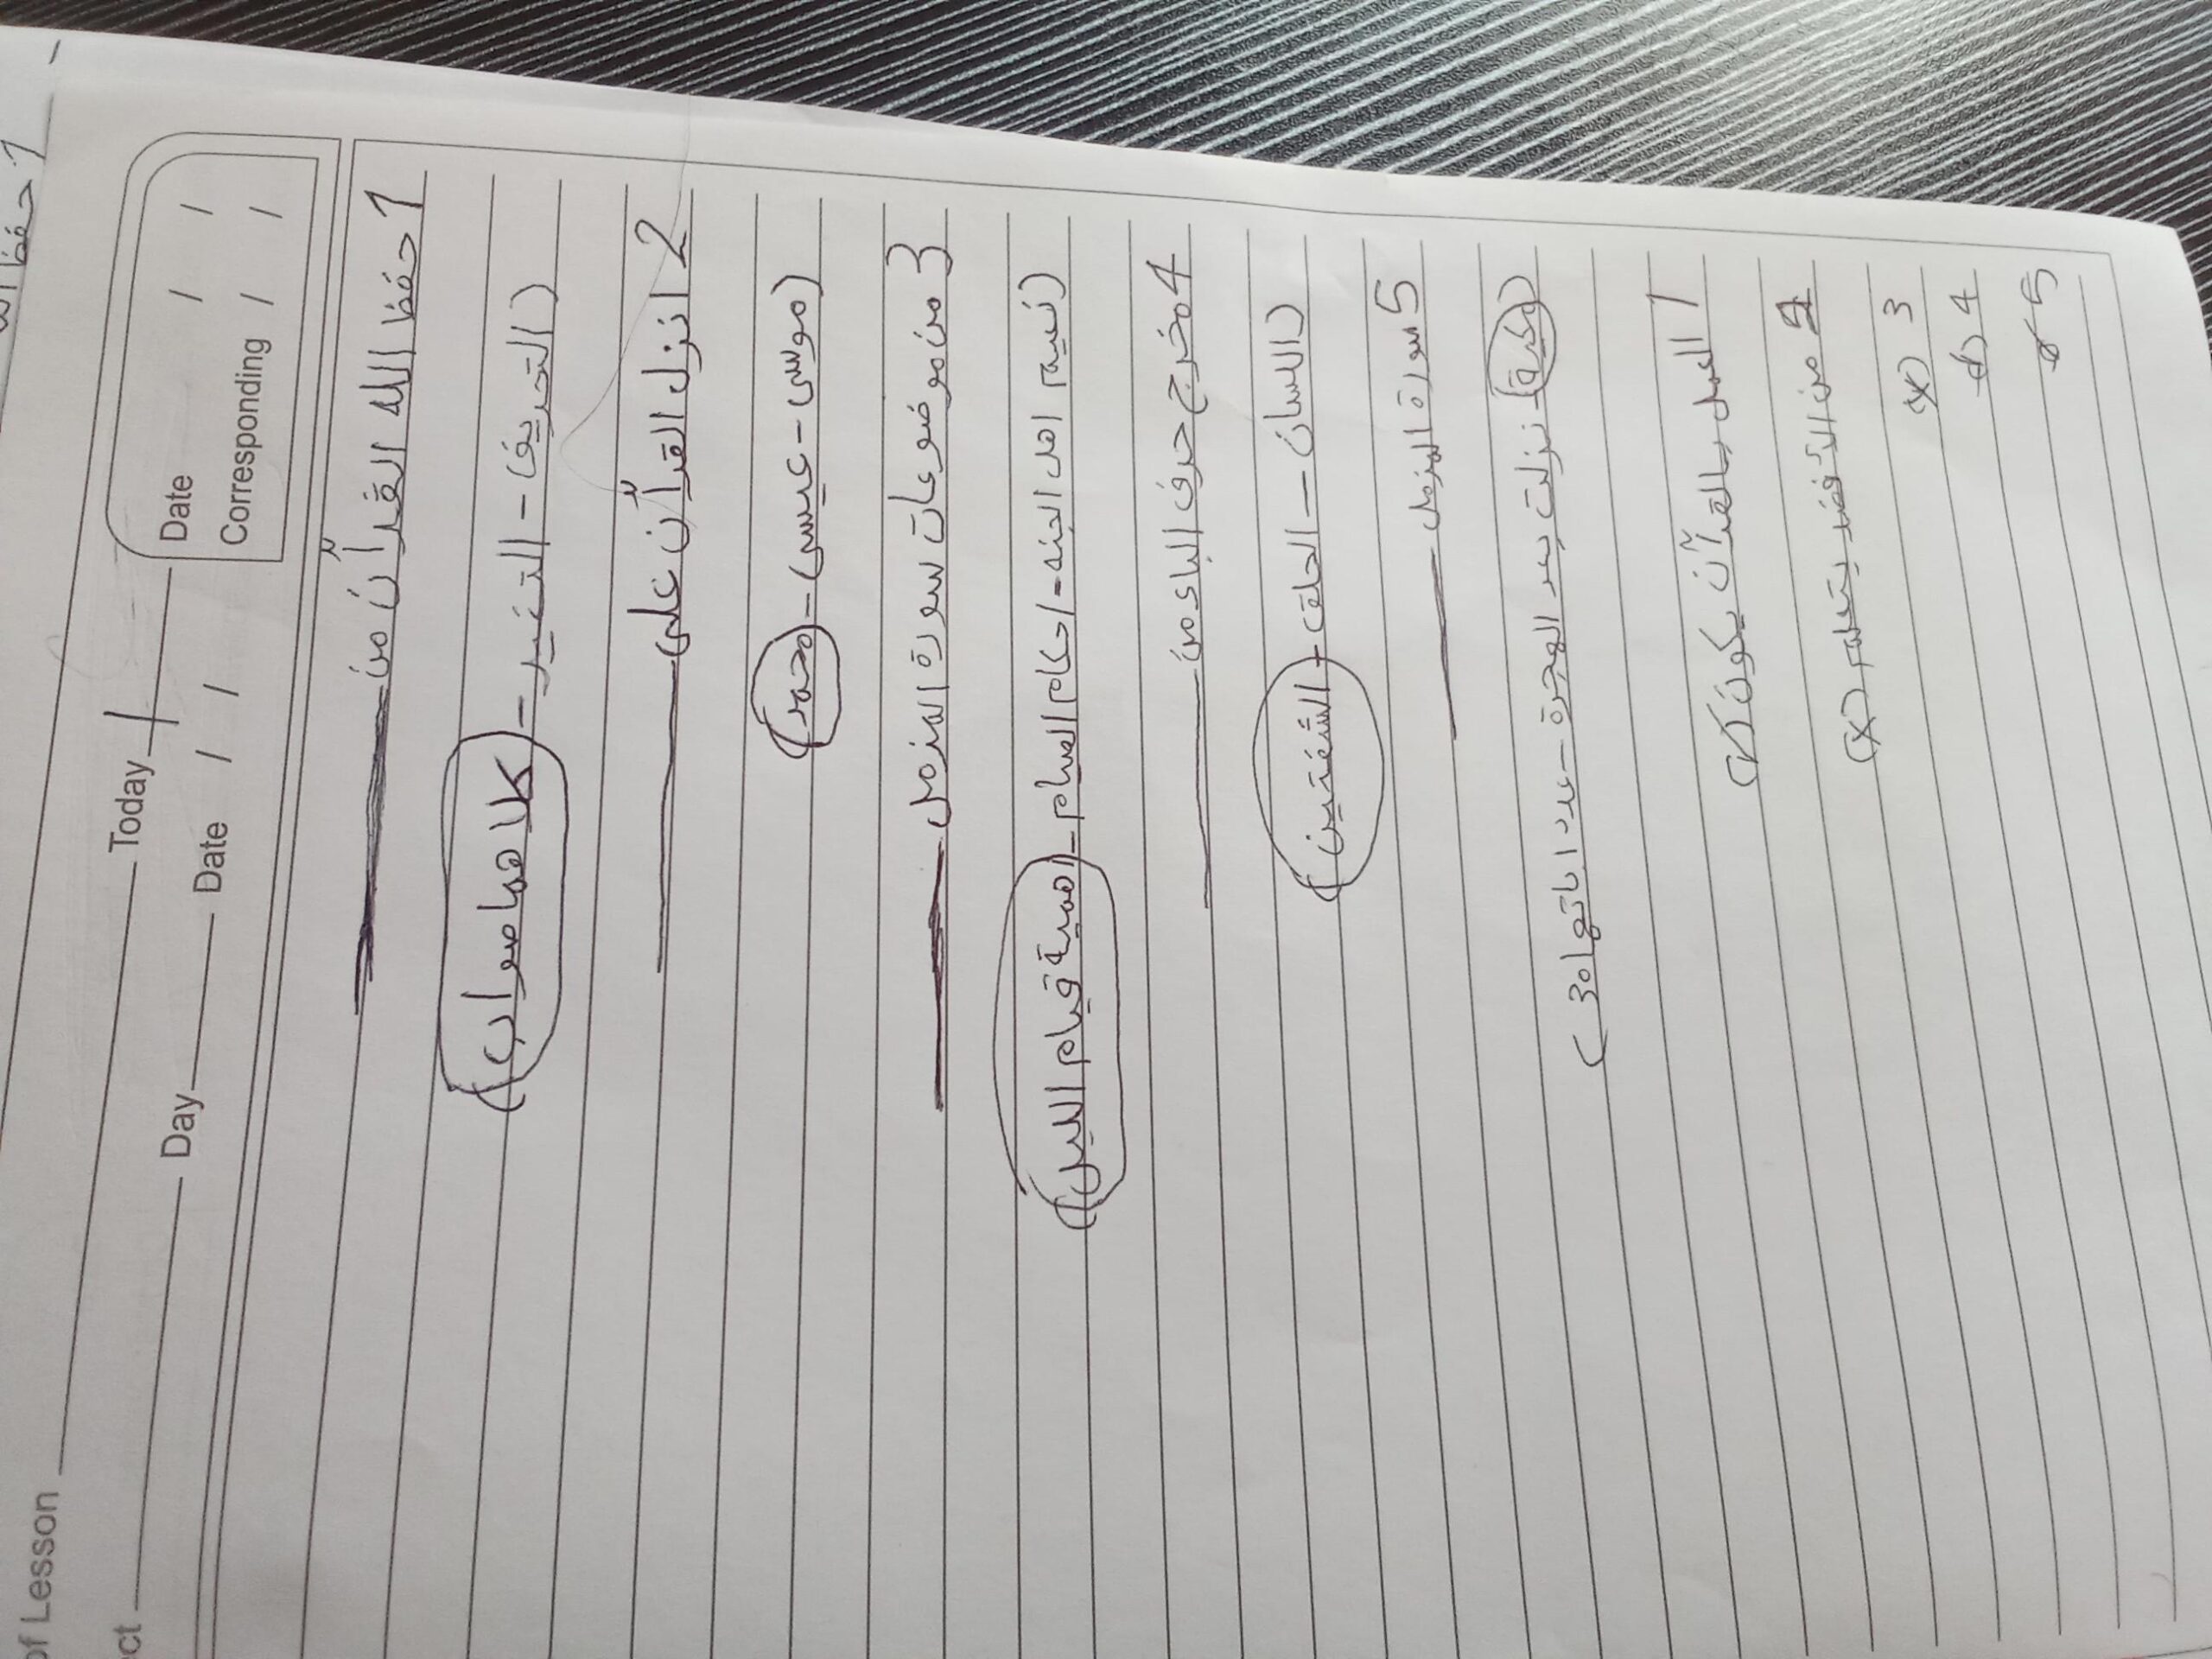 of Lesson
Today
Date / /
ect
Day
Date / /
Corresponding / /
1 حفظ الله القرآن من
(التحريف - التغير - كلاهما صواب)
2 انزل القرآن على
(موسى - عيسى - محمد)
3 من موضوعات سورة المزمل
(نعيم اهل الجنه - احكام الصيام - اهمية قيام الليل)
4 مخرج حرف الباء من
(اللسان - الحلق - الشفتين)
5 سورة المزمل
(مكية - نزلت بعد الهجرة - عدد اياتها 30)
1 العمل بالقرآن يكون
من الأفضل يتعلم (x)
3 (x)
4 (✓)
5 ✓